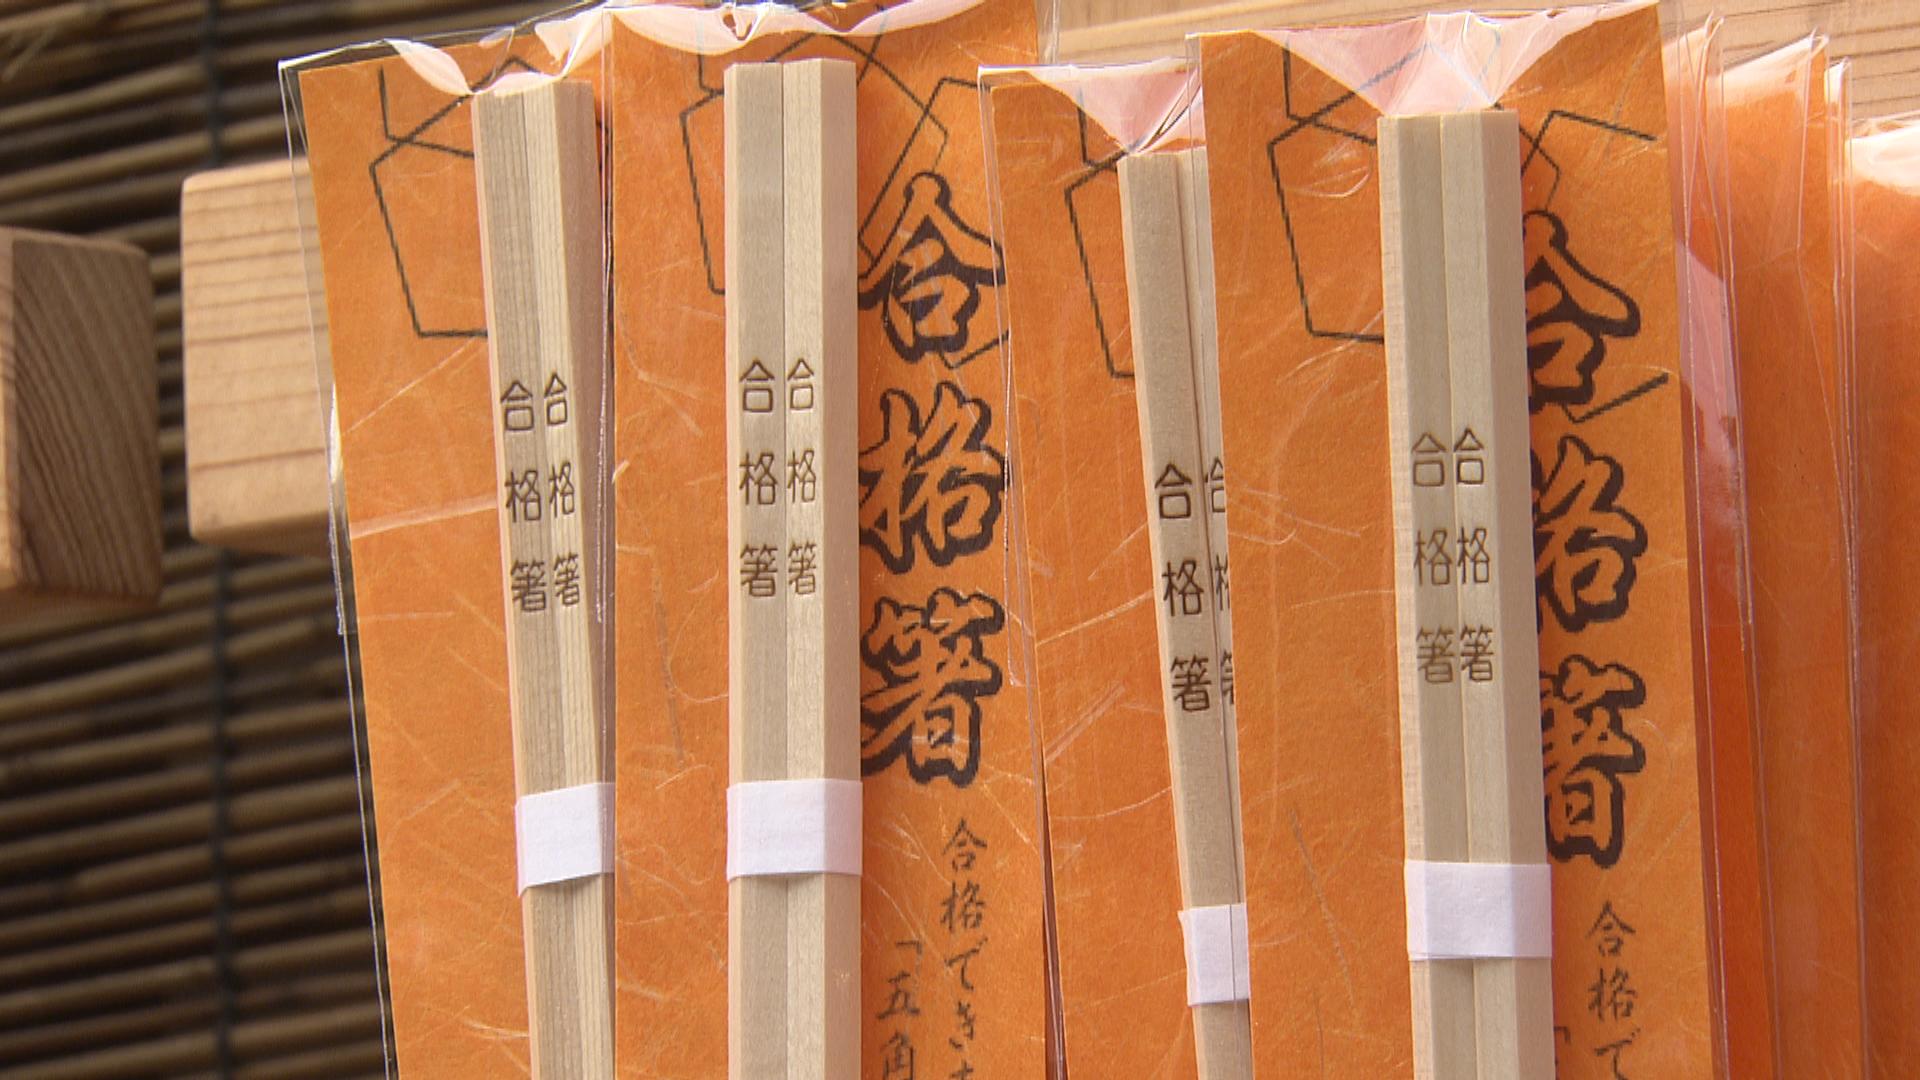 合格箸
合格箸
合格箸
合格箸
合格箸
合格でき
「五角
合格箸
合格箸
合格箸
合格箸
合格で